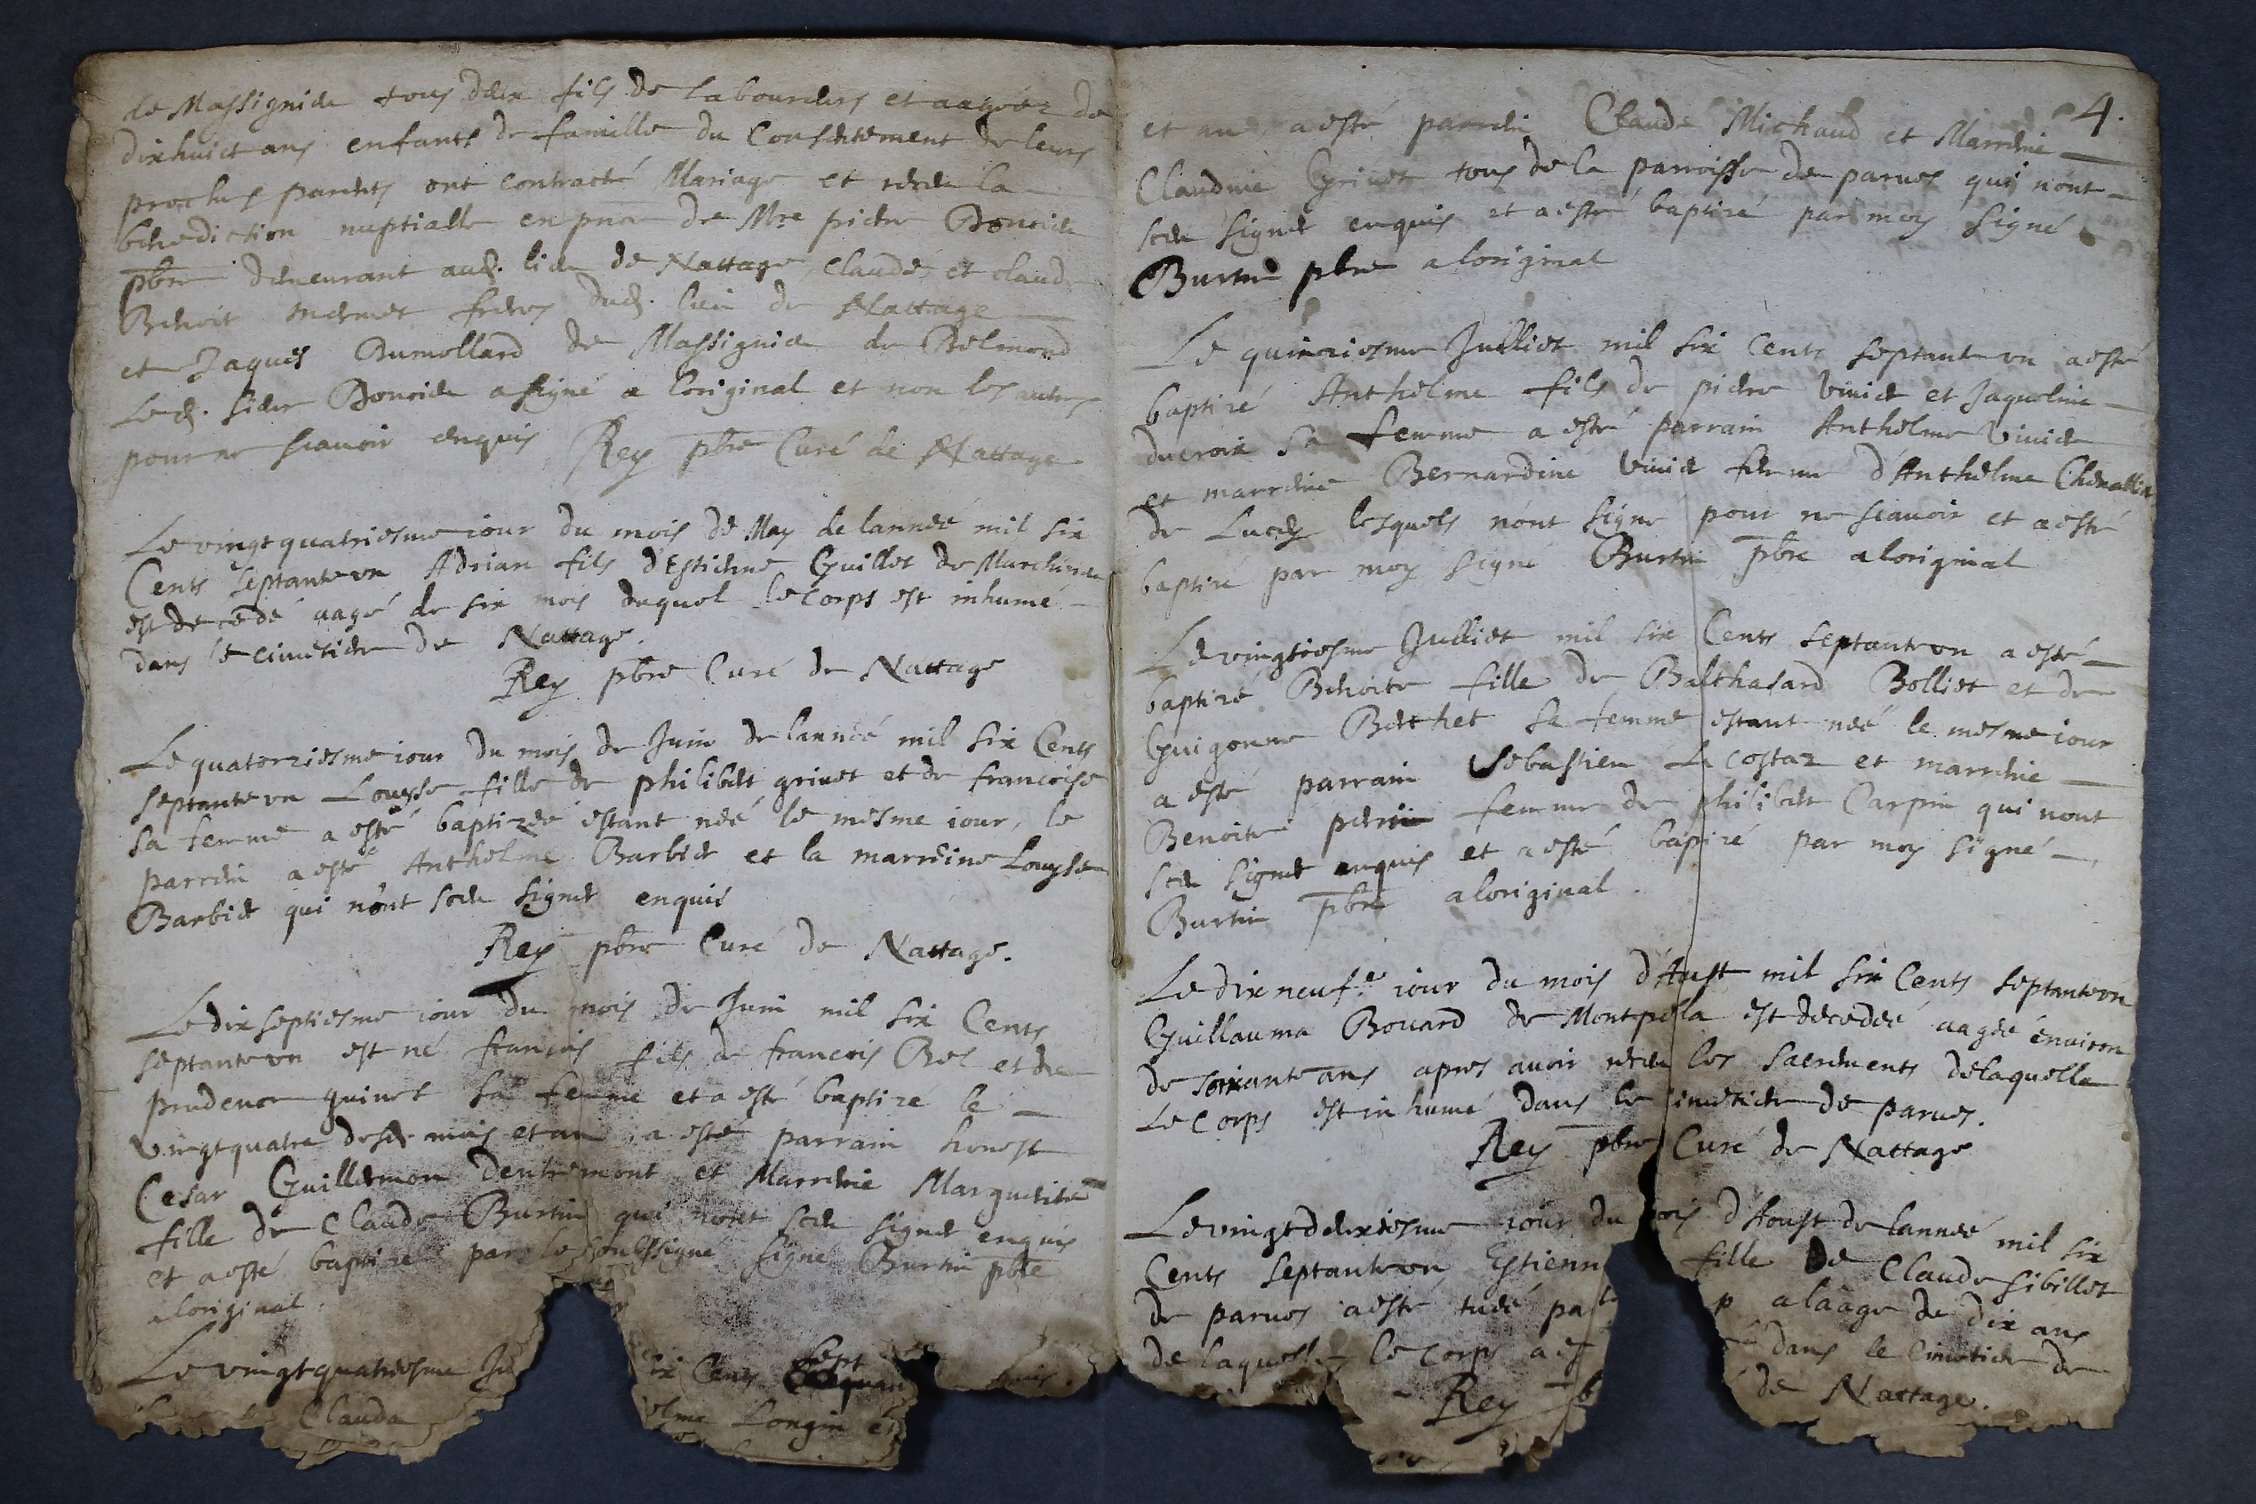 de Massignieu tous deux fils de laboureurs et aagéez de
dixhuict ans enfants de famille du Consentement de leurs
proches parents ont contracté Mariage et receu la
benediction nuptialle en pnce de Mre pierre Doncieu
pbre demeurant aud. lieu de Nattage, Claude, et claude
Benoit mermet freres dud. lieu de Nattage
et Jaques Dumollard de Massignieu de Belmond
Led. sieur Doncieu a signé a loriginal et non les autres
pour ne scavoir enquis Rey pbre Curé de Nattage
Le vingt quatriesme iour du mois de May de lanneé mil six
Cents septante un Adrian fils d'Estienne Guillot de
est decedé aagé de six mois duquel le corps est inhumé
dans le cimetiere de Nattage.
Rey pbre Curé de Nattage
Le quatorziesme iour du mois de Juin de lanneé mil six Cents
septante un Louyse fille de philibert grivet et de francoise
sa femme a esté baptizeé estant neé le mesme iour, le
parrein a esté Anthelme Barbiet et la marreine Louyse
Barbiet qui nont sceu signer enquis
Rey pbre Curé de Nattage.
Le dix septiesme iour du mois de Juin mil six Cents
septante un est né francois fils de francois Bes et de
prudence guinet sa femme et a esté baptize le
vingt quatre desd. mois et an a esté parrain honest
Cesar Guillermon dentremont et Marreine Marguerite
fille de Claude Burtin qui nont sceu signer enquis
et a esté baptizé par le soubssigné signé Burtin pbre
a loriginal.
Le vingt quatriesme Ju ix Cents sept
Clauda elme Longin e
4.
et an a esté parrein Claude Michaud et Marreine
Claudine Grivet tous de la parroisse de parves qui nont
sceu signer enquis et a esté baptizé par moy signé
Burtin pbre a loriginal
Le quinziesme Julliet mil six Cents septante un a esté
baptizé Anthelme fils de pierre Viviet et Jaqueline
ducroix sa femme a esté parrain Anthelme Viviet
et marreine Bernardine Viviet femme d'Anthelme Chevallier
de Lucey lesquels nont signé pour ne scavoir et a esté
baptizé par moy signe Burtin pbre a loriginal
Le vingtiesme Julliet mil six Cents septante un a esté
baptizé Benoite fille de Balthasard Bolliet et de
Guigonne Berthet sa femme estant neé le mesme iour
a esté parrain Sebastien La costaz et marreine
Benoite femme de philibert Carpin qui nont
sceu signer enquis et a esté baptizé par moy signé
Burtin pbre a loriginal.
Le dix neufe. iour du mois d'Aust mil six Cents septante un
Guillauma Bovard de Montpela est decedeé aageé environ
de soixante ans apres avoir receu les sacrements de laquelle
Le corps est inhumé dans le cimetiere de parves.
Rey pbre Curé de Nattage
Le vingt deuxiesme iour du mois d'Aoust de lanneé mil six
Cents septante un Estienn fille de Claude Sibillet
de parves a esté tueé pa p a laage de dix ans
de laquelle le corps a es dans le Cimetiere de
Rey é de Nattage.